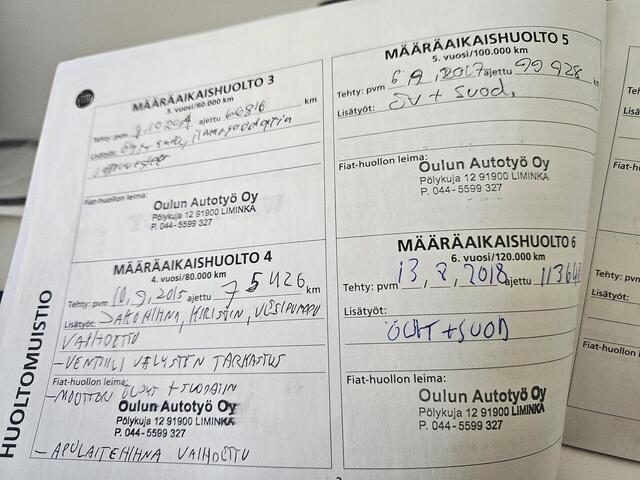 HUOLTOMUISTIO
MÄÄRÄAIKAISHUOLTO 3
3. vuosi/60.000 km
Tehty: pvm 8.10.2014 ajettu 60816 km
Lisätyöt:
Fiat-huollon leima:
Oulun Autotyö Oy
Pölykuja 12 91900 LIMINKA
P. 044-5599 327
MÄÄRÄAIKAISHUOLTO 4
4. vuosi/80.000 km
Tehty: pvm 10.9.2015 ajettu 75426 km
Lisätyöt: JAKOHIHNA, KIRISTIN, VESIPUMPPU
VAIHDETTU
-VENTTIILI VÄLYSTEN TARKASTUS
Fiat-huollon leima:
-MOOTTORI ÖLJYT + SUODATIN
Oulun Autotyö Oy
Pölykuja 12 91900 LIMINKA
P. 044-5599 327
-APULAITEHIHNA VAIHDETTU
MÄÄRÄAIKAISHUOLTO 5
5. vuosi/100.000 km
Tehty: pvm 6.9.2017 ajettu 99928 km
Lisätyöt: öv + suod.
Fiat-huollon leima:
Oulun Autotyö Oy
Pölykuja 12 91900 LIMINKA
P. 044-5599 327
MÄÄRÄAIKAISHUOLTO 6
6. vuosi/120.000 km
Tehty: pvm 13.8.2018 ajettu
Lisätyöt:
ÖLJYT + SUOD
Fiat-huollon leima:
Oulun Autotyö Oy
Pölykuja 12 91900 LIMINKA
P. 044-5599 327
Tehty: pvm
Lisätyöt:
Fiat-huollon
Tehty: pvm
Lisätyöt:
Fiat-huollon